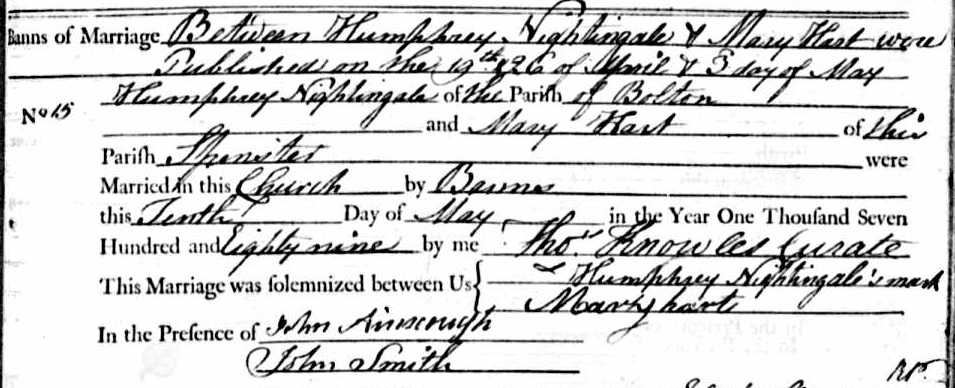 Banns of Marriage Between Humphrey Nightingale & Mary Hart were
Published on the 19th & 26 of April & 3 day of May
No 15 Humphrey Nightingale of the Parish of Bolton
and Mary Hart of this
Parish Spinster were
Married in this Church by Banns
this Tenth Day of May in the Year One Thousand Seven
Hundred and Eighty nine by me Thos Knowles Curate
This Marriage was solemnized between Us Humphrey Nightingale's mark
Mary harte
In the Presence of John Ainscough
John Smith